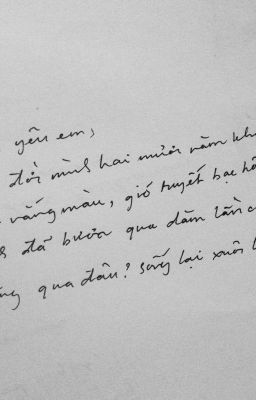 yêu em,
đời mình hai mươi năm
vắng màu, gió tuyết bạc
đã bước qua dăm lần
qua đâu? sống lại xuôi